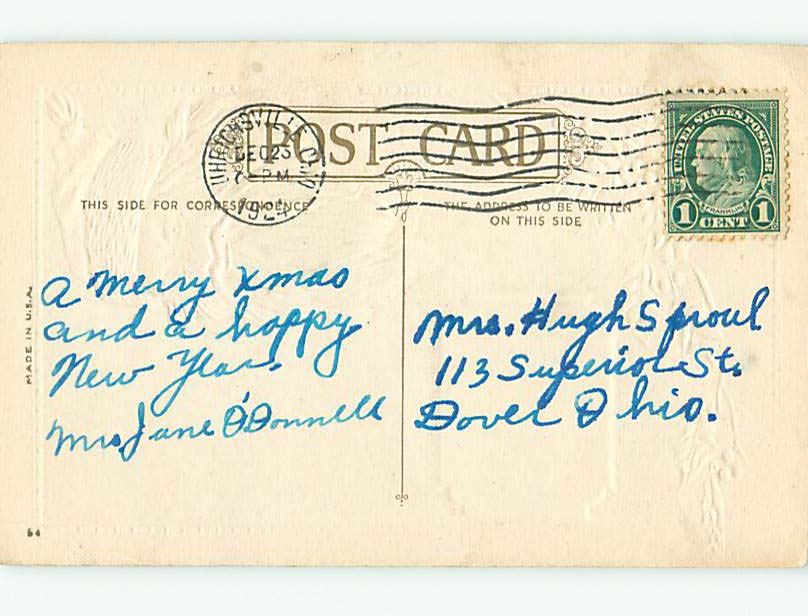 UHRICHSVILLE OHIO
DEC 23
7 PM
1924
POST CARD
UNITED STATES POSTAGE
FRANKLIN
1 CENT 1
THIS SIDE FOR CORRESPONDENCE
THE ADDRESS TO BE WRITTEN
ON THIS SIDE
MADE IN U.S.A.
A Merry Xmas
and a happy
New Year.
Mrs. Jane O'Donnell
Mrs. Hugh Sproul
113 Superior St.
Dover Ohio.
54